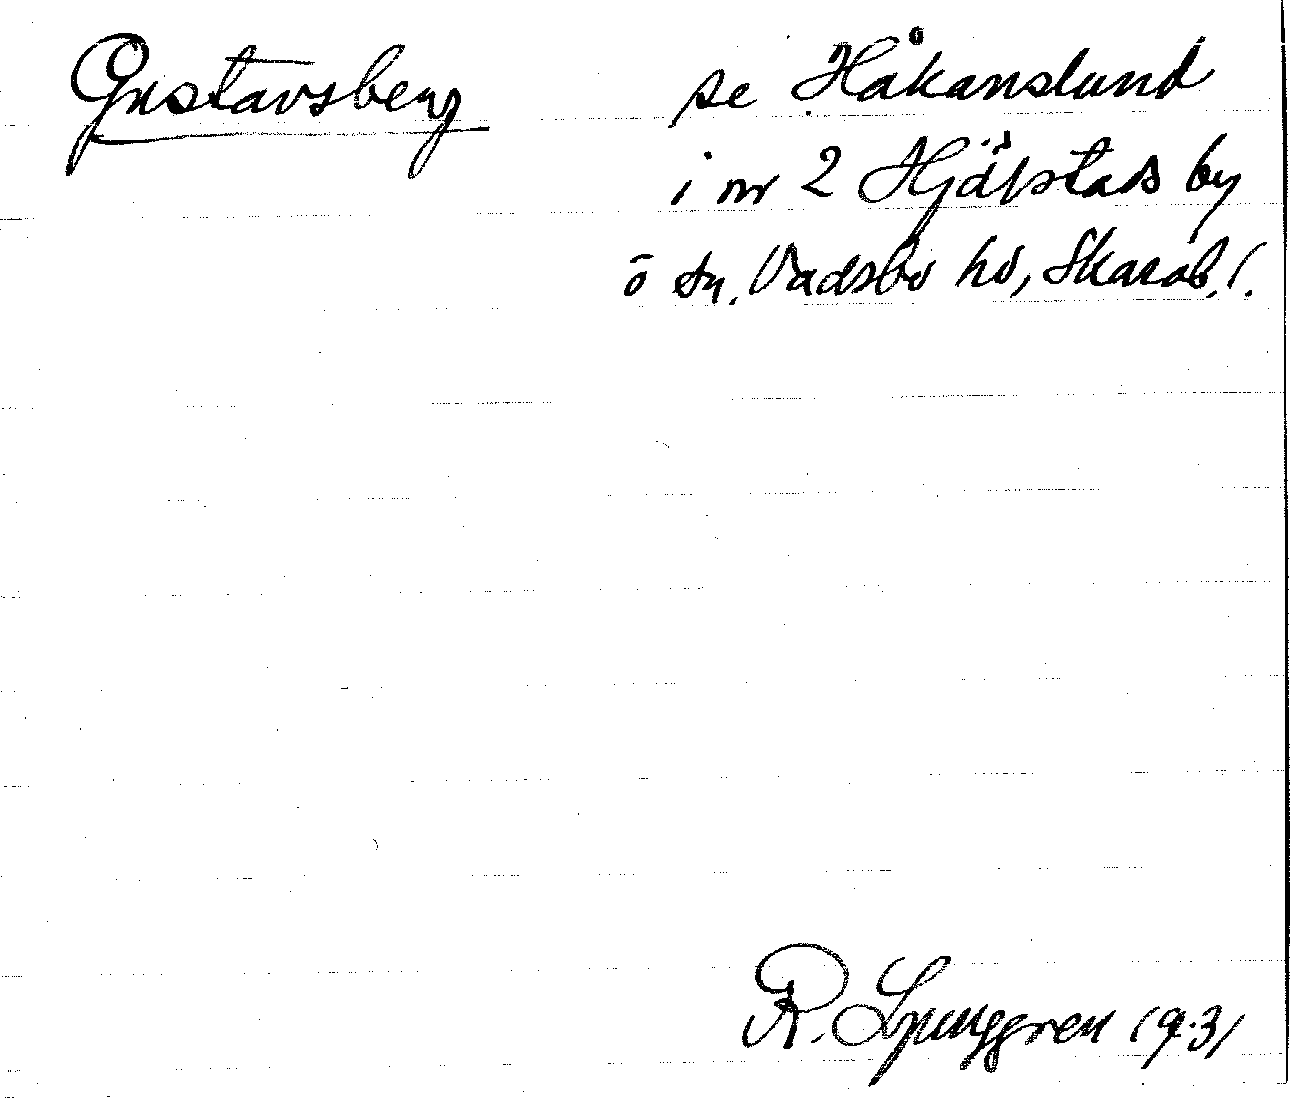 Gustavsberg se Håkanslund
i nr 2 Hjälstads by
ō sn. Vadsbo hd, Skarab. l.
R. Ljunggren 1931